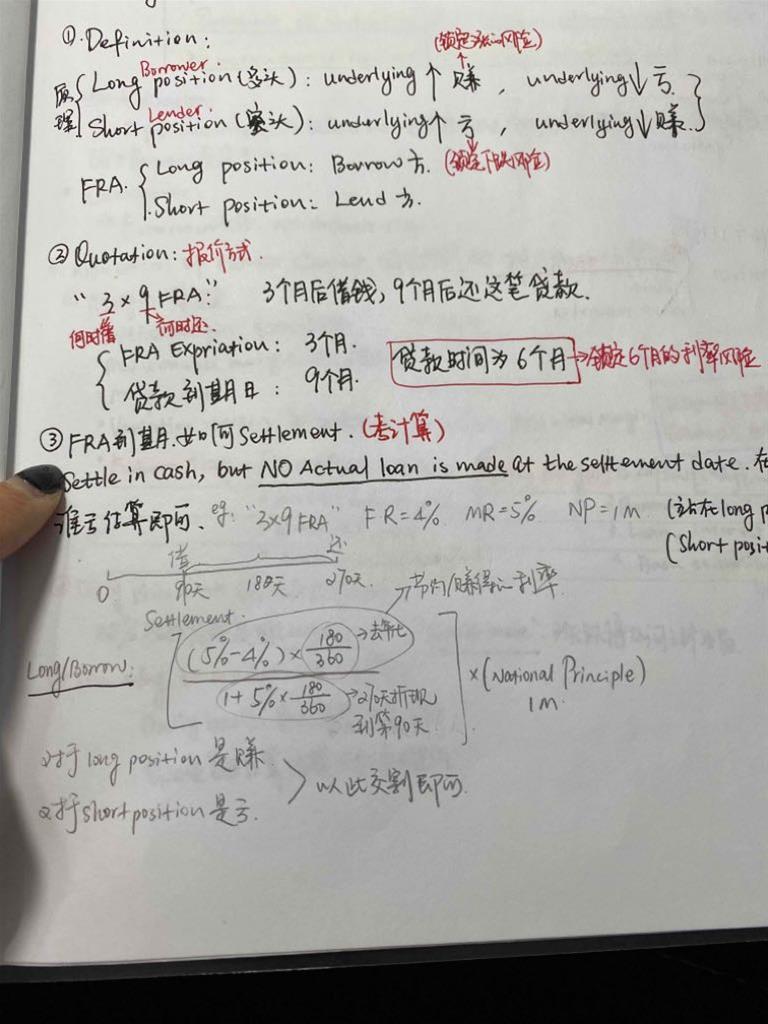 ①.Definition:
(锁定上涨的风险)
Borrower
原理 Long position(多头): underlying↑ 赚, underlying↓ 亏.
Lender.
Short position(空头): underlying↑ 亏, underlying↓ 赚.
(锁定下跌风险)
FRA. Long position: Borrow方.
Short position: Lend方.
② Quotation: 报价方式.
"3×9 FRA": 3个月后借钱, 9个月后还这笔贷款.
何时借 何时还.
FRA Expriation: 3个月. 贷款时间为6个月→锁定6个月的利率风险
贷款到期日: 9个月.
③ FRA到期.如何Settlement.(考计算)
Settle in cash, but NO Actual loan is made at the selttement date. 在
谁亏结算即可. eg: "3×9 FRA" FR=4% MR=5% NP=1M (站在long p
(Short posit
借 还
0 90天 180天 270天.
Settlement. →节约/赚得的利率
Long/Borrow: (5%-4%)×180/360→去年化
1+5%×180/360→270天折现到第90天
×(National Principle)
1M.
对于long position是赚.
对于short position是亏.
以此交割即可.